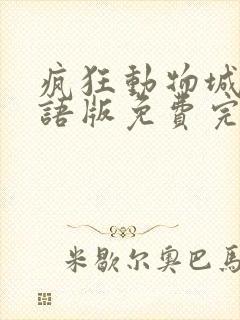 瘋狂動物城
語版免費完
米歇尔奥巴馬